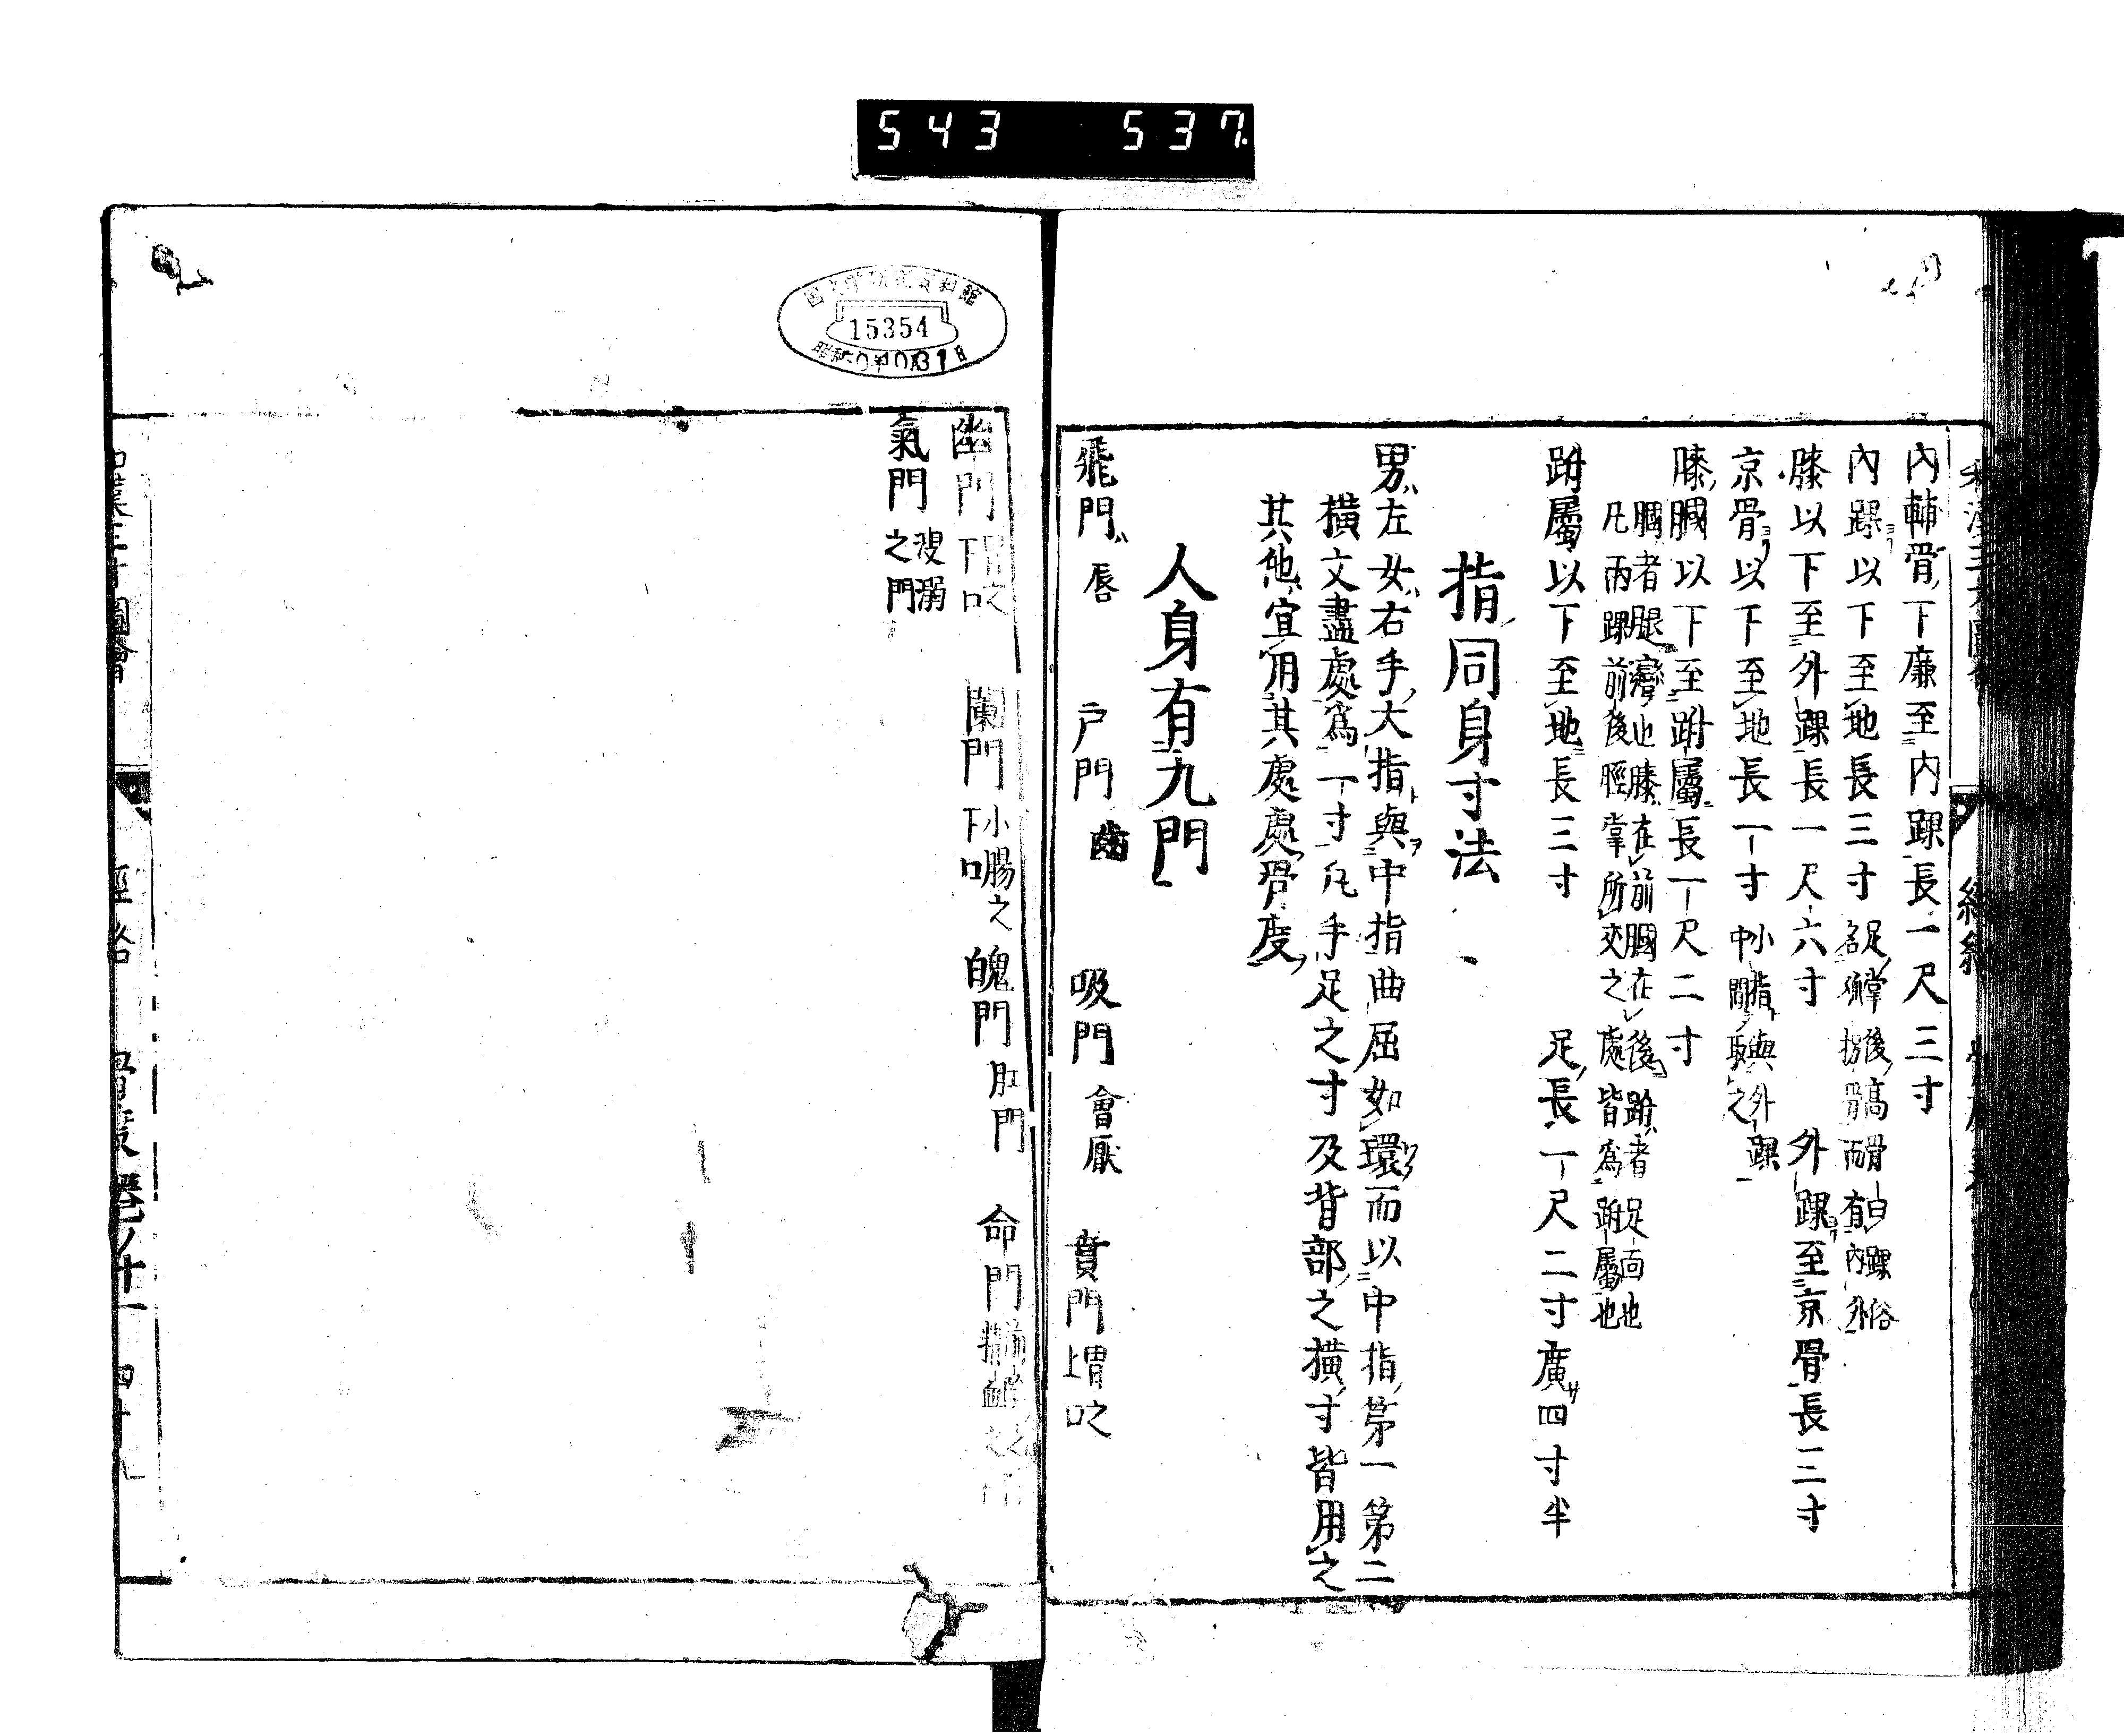 543 537
內輔骨下廉至內踝長一尺三寸
內踝以下至地長三寸 足掌後高骨曰踝俗
有內外
膝以下至外踝長一尺六寸 外踝至京骨長三寸
京骨以下至地長一寸 小指與外踝
中間取之
膝膕以下至跗屬長一尺二寸
膕者腿灣也膝在前膕在後跗者足面也
凡兩踝前後脛掌所交之處皆爲跗屬也
跗屬以下至地長三寸 足長一尺二寸廣四寸半
指同身寸法
男左女右手大指與中指曲屈如環而以中指第一第二
橫文盡處爲一寸凡手足之寸及背部之橫寸皆用之
其他宜用其處處骨度
人身有九門
飛門 唇 戸門 齒 吸門 會厭 賁門 胃之
上口
幽門 胃之
下口 闌門 小腸之
下口 魄門 肛門 命門 精血之
氣門 溲溺
之門
經絡 骨度 卷ノ十一 四十九
15354